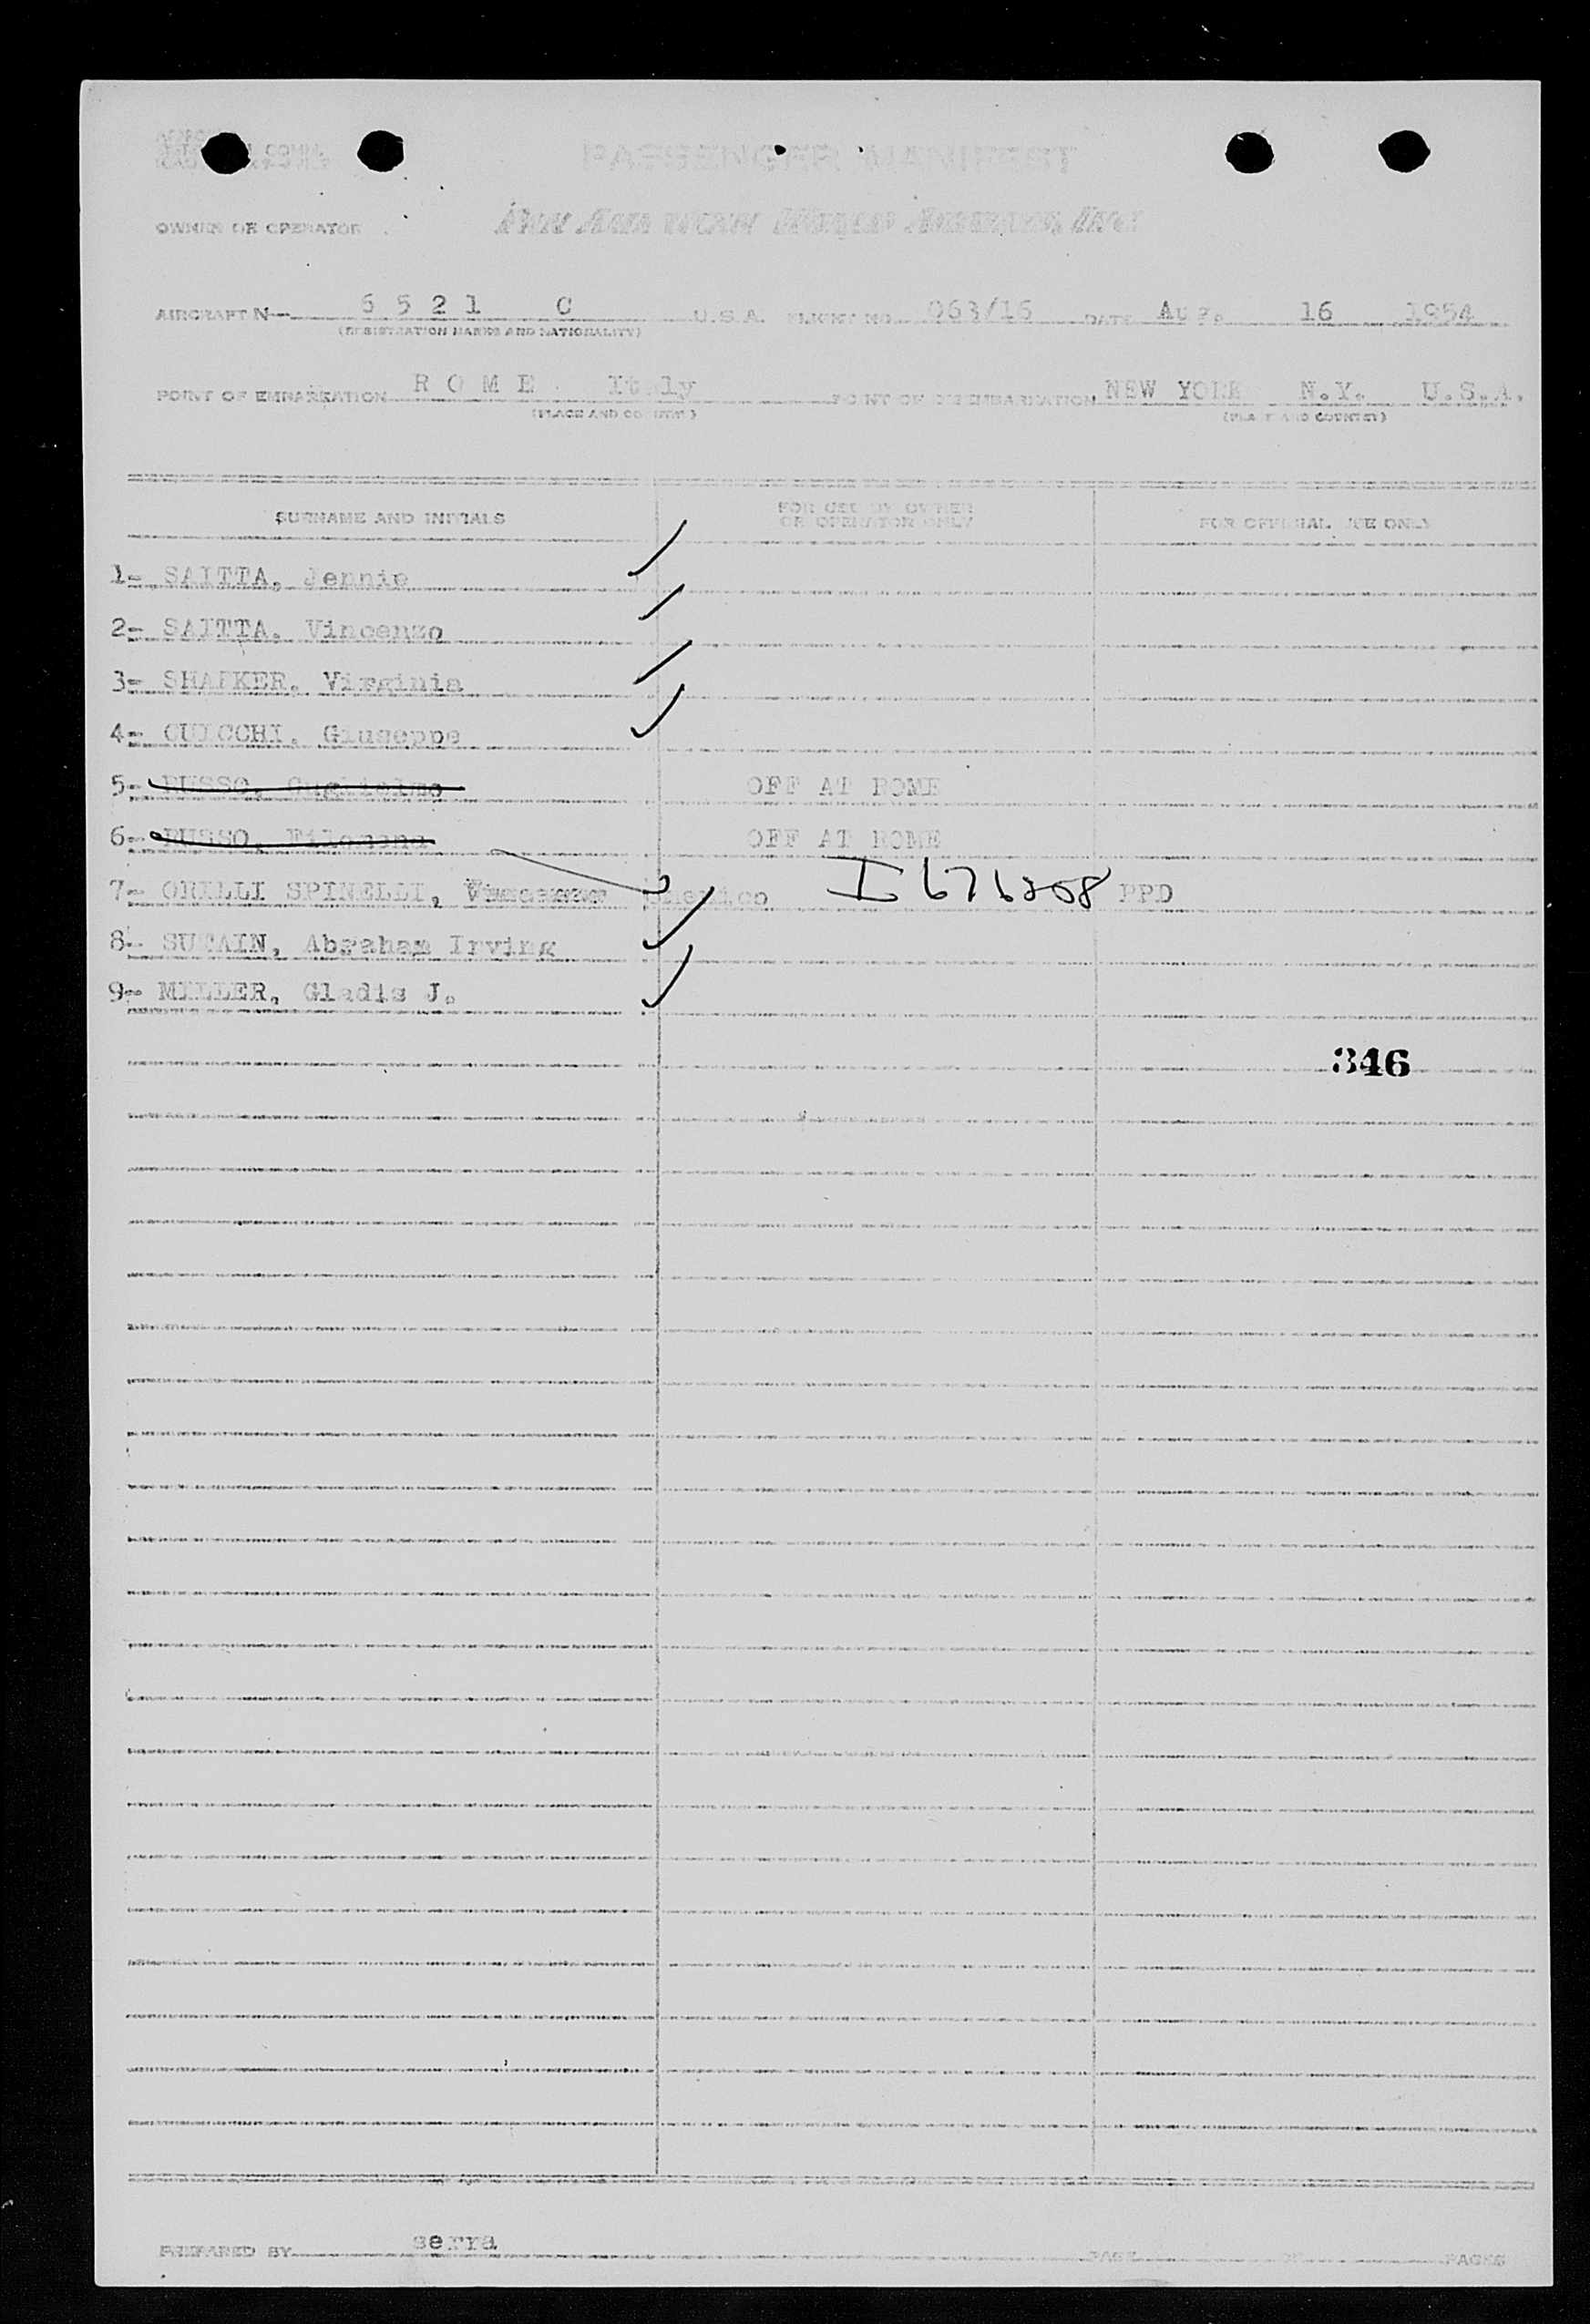 PASSENGER MANIFEST
OWNER OR OPERATOR PAN AMERICAN WORLD AIRWAYS, INC.
AIRCRAFT N- 6 5 2 1 C U.S.A. FLIGHT NO. 063/16 DATE Aug. 16 1954
(REGISTRATION MARKS AND NATIONALITY)
POINT OF EMBARKATION R O M E Italy POINT OF DISEMBARKATION NEW YORK N.Y. U.S.A.
(PLACE AND COUNTRY) (PLACE AND COUNTRY)
SURNAME AND INITIALS FOR USE BY OWNER OR OPERATOR ONLY FOR OFFICIAL USE ONLY
1- SAITTA, Jennie
2- SAITTA, Vincenzo
3- SHAFKER, Virginia
4- Giuseppe
5- RUSSO, Guglielmo OFF AT ROME
6- RUSSO, Filomena OFF AT ROME
7- ORILLI SPINELLI, I 676208 PPD
8- SUTAIN, Abraham Irving
9- MILLER, Gladis J.
346
PREPARED BY serra PAGE OF PAGES